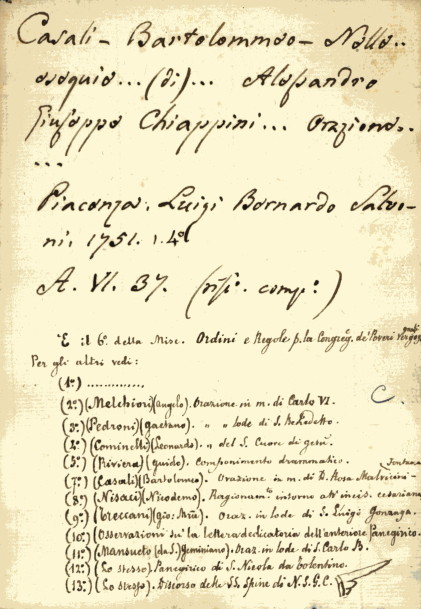 Casali - Bartolommeo - Nelle..
esequie... (di)... Alessandro
Giuseppe Chiappini... Orazione..
...
Piacenza. Luigi Bernardo Salvo-
ni. 1751. 4º
A. VI. 37. (risp. comp.)
È il 6º della Misc. Ordini e Regole p. la Congreg. de' Poveri Vergog
nosi
Per gli altri vedi:
(1º) ..............
(2º) (Melchiori) (Angelo). Orazione in m. di Carlo VI.
(3º) (Pedroni) (Gaetano). " " lode di S. Benedetto.
(4º) (Cominelli) (Leonardo). " del S. Cuore di Gesù.
(5º) (Riviera) (Guido). Componimento drammatico.
(7º) (Casali) (Bartolomeo). Orazione in m. di D. Rosa Malvicini-
Fontana
(8º) (Nisaci) (Nicodemo). Ragionam.to intorno all' incis. cesariana
(9º) (Treccani) (Gio: Mria). Oraz. in lode di S. Luigi Gonzaga.
(10º) Osservazioni su la lettera dedicatoria dell'anteriore Panegirico.
(11º) Mansueto (da S.) Geminiano). Oraz. in lode di S. Carlo B.
(12º) (Lo stesso). Panegirico di S. Nicola da Tolentino.
(13º) (Lo stesso). Discorso delle SS. Spine di N. S. G. C.
C.